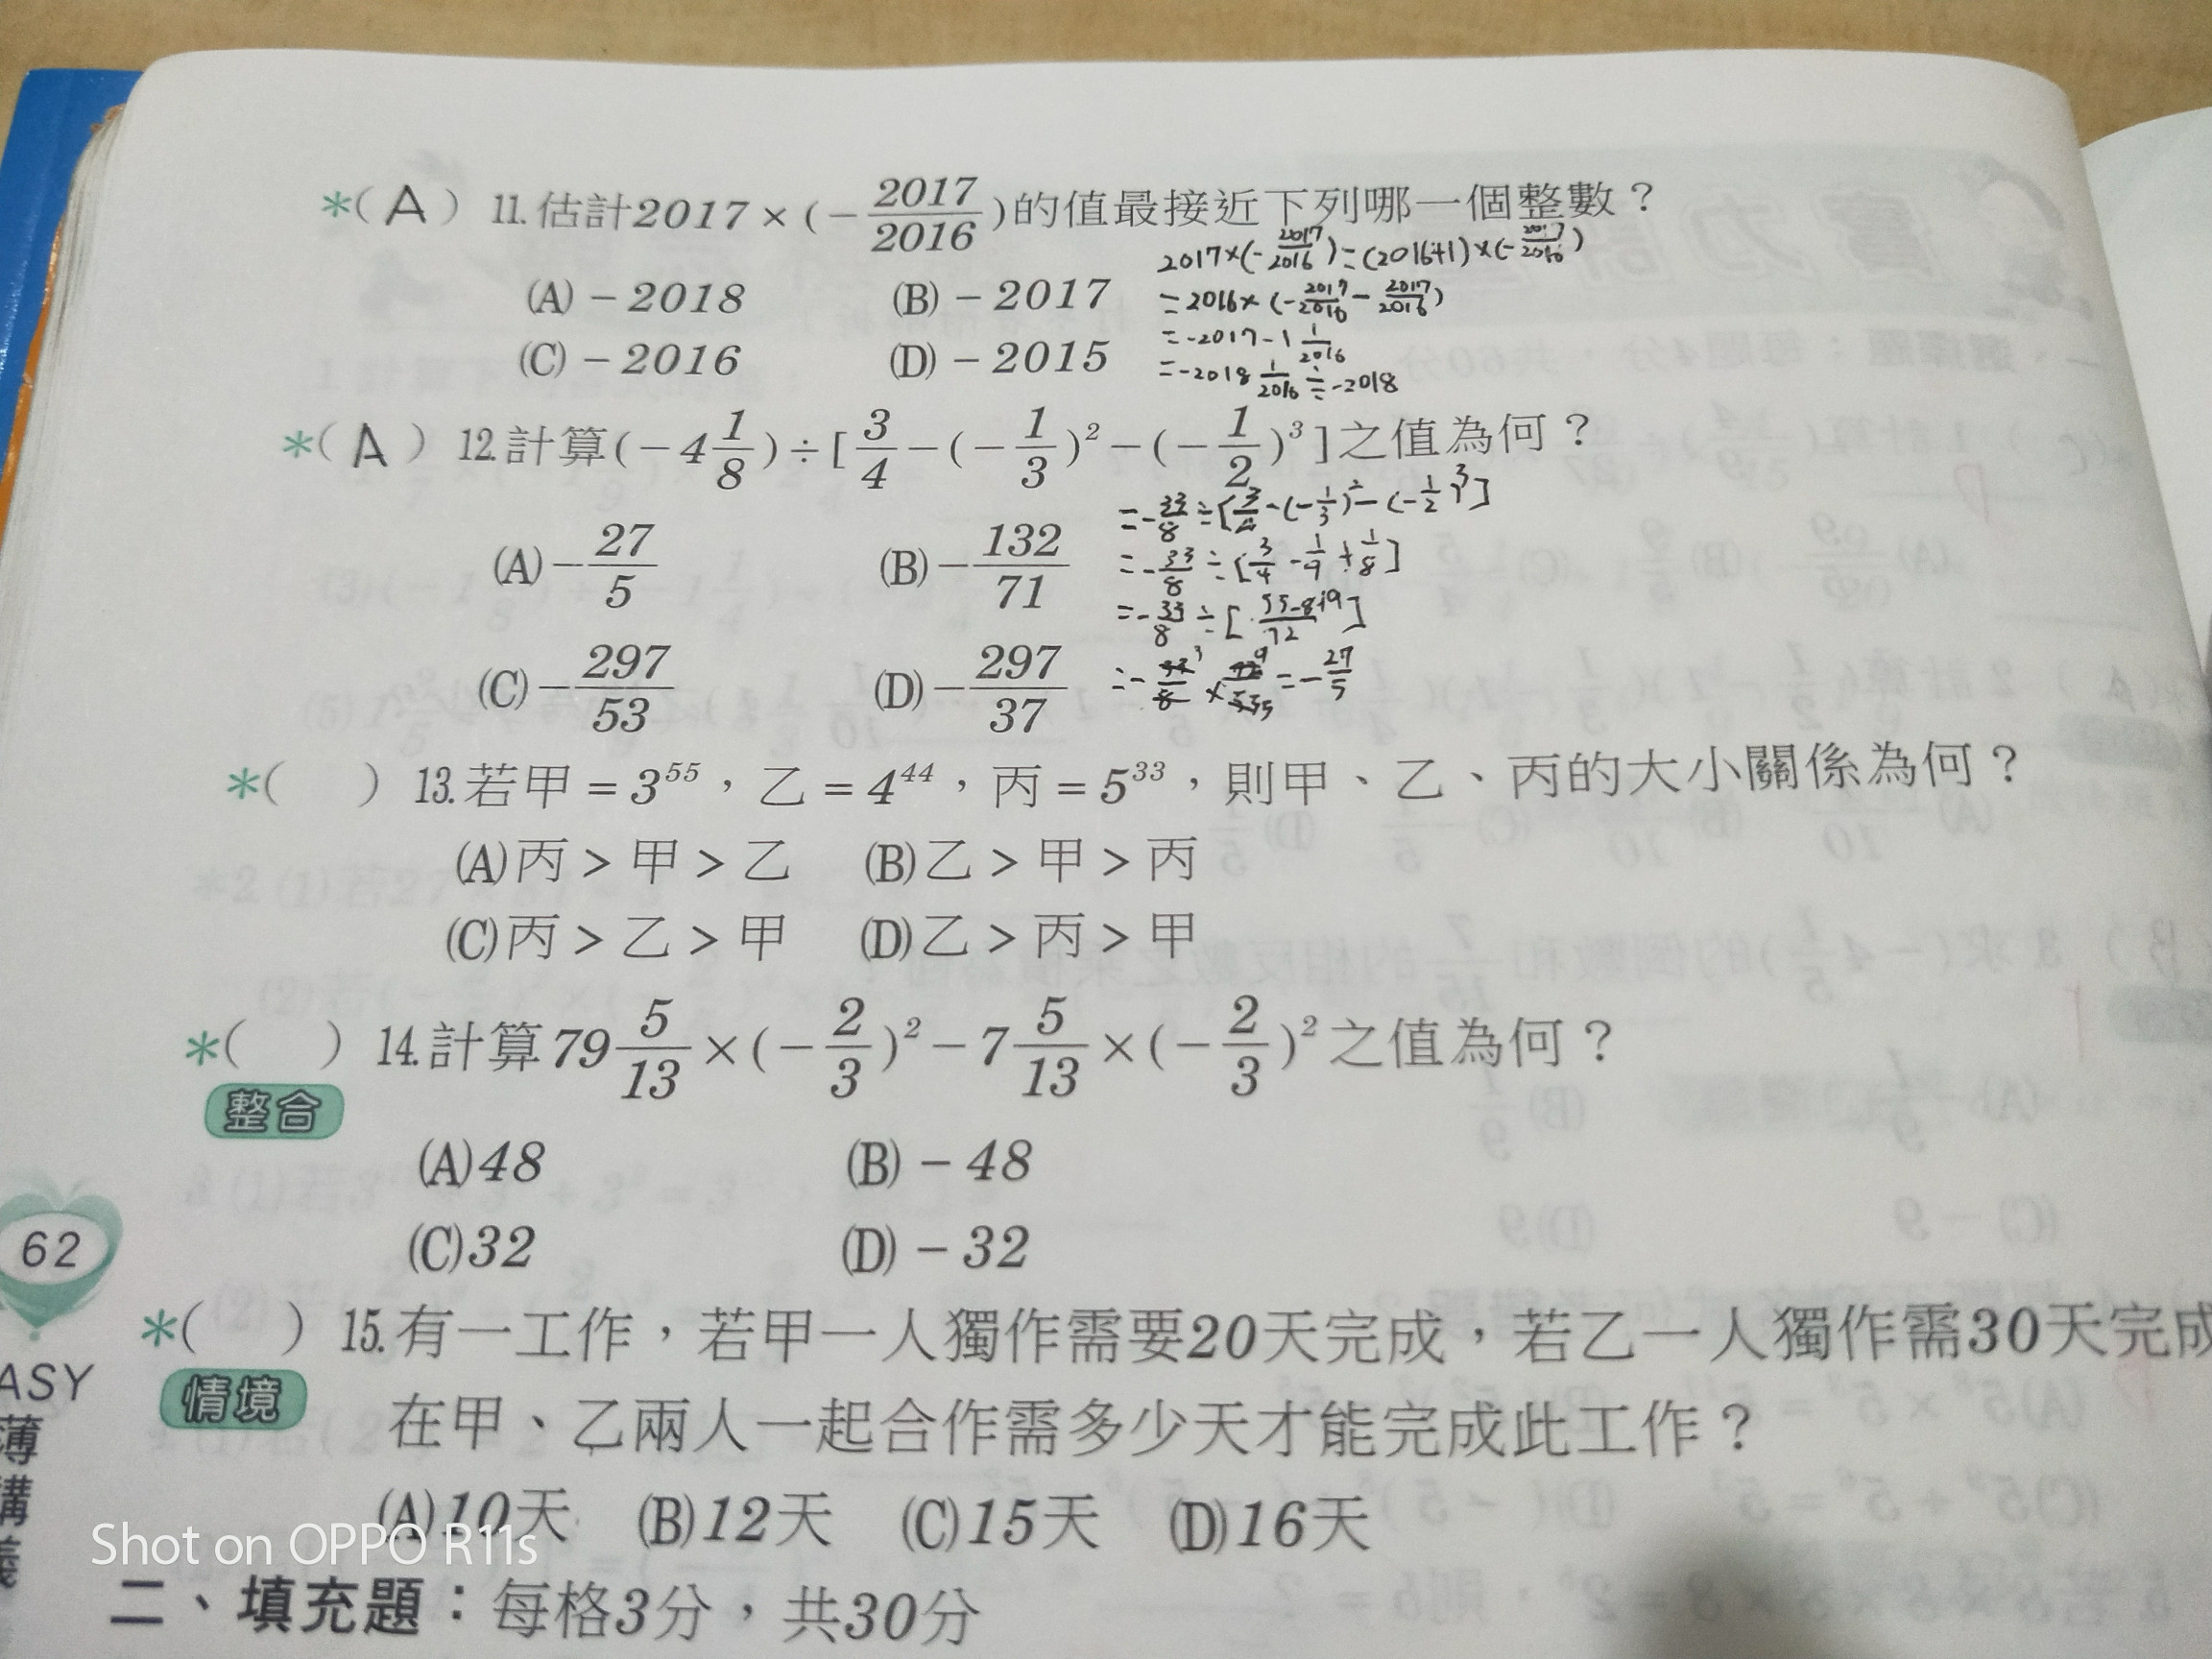 *( A ) 11.估計2017×(-2017/2016)的值最接近下列哪一個整數？
2017×(-2017/2016)=(2016+1)×(-2017/2016)
(A)-2018 (B)-2017
=2016×(-2017/2016-2017/2016)
=-2017-1 1/2016
(C)-2016 (D)-2015
=-2018 1/2016≒-2018
*( A ) 12.計算(-4 1/8)÷[3/4-(-1/3)²-(-1/2)³]之值為何？
=-33/8÷[3/4-(-1/3)²-(-1/2)³]
(A)-27/5 (B)-132/71
=-33/8÷[3/4-1/9+1/8]
=-33/8÷[55-8+9/72]
(C)-297/53 (D)-297/37
=-27/5
*( ) 13.若甲=3⁵⁵，乙=4⁴⁴，丙=5³³，則甲、乙、丙的大小關係為何？
(A)丙>甲>乙 (B)乙>甲>丙
(C)丙>乙>甲 (D)乙>丙>甲
*( ) 14.計算79 5/13×(-2/3)²-7 5/13×(-2/3)²之值為何？
整合
(A)48 (B)-48
(C)32 (D)-32
62
*( ) 15.有一工作，若甲一人獨作需要20天完成，若乙一人獨作需30天完成
情境
在甲、乙兩人一起合作需多少天才能完成此工作？
(A)10天 (B)12天 (C)15天 (D)16天
二、填充題：每格3分，共30分
ASY
薄
講
義
Shot on OPPO R11s